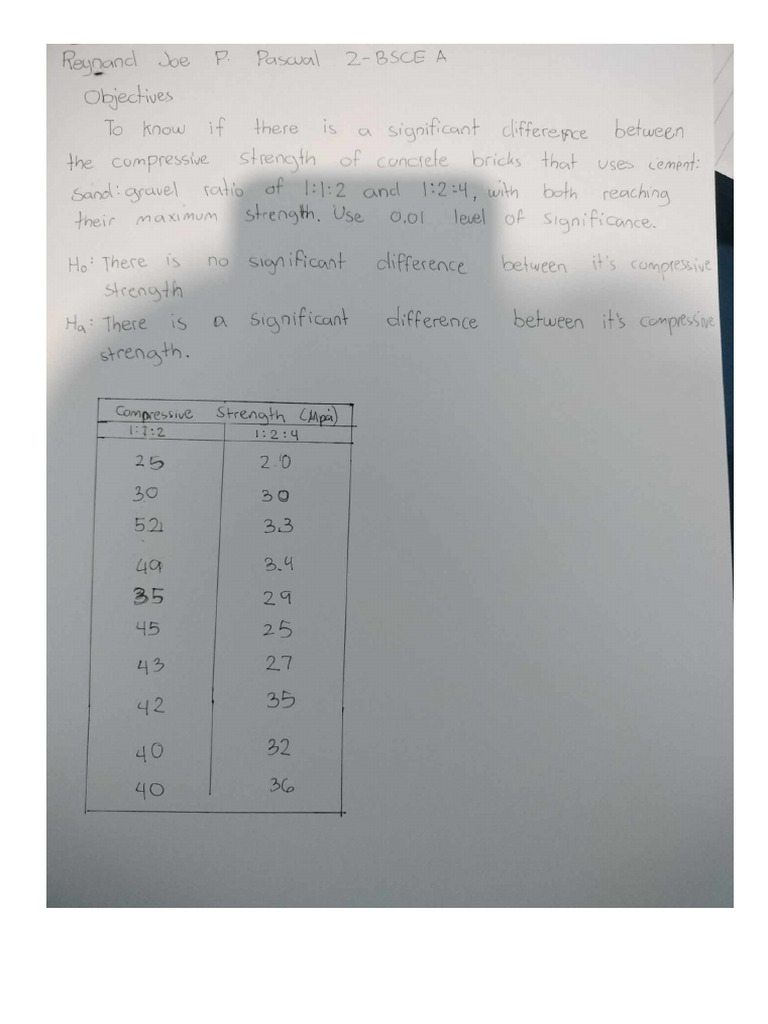 Reynand Joe P. Pascual 2-BSCE A
Objectives
To know if there is a significant difference between
the compressive strength of concrete bricks that uses cement:
sand:gravel ratio of 1:1:2 and 1:2:4, with both reaching
their maximum strength. Use 0.01 level of significance.
Ho: There is no significant difference between it's compressive
strength
Ha: There is a significant difference between it's compressive
strength.
Compressive Strength (Mpa)
1:1:2 1:2:4
25 2.0
30 30
52 3.3
49 3.4
35 29
45 25
43 27
42 35
40 32
40 36